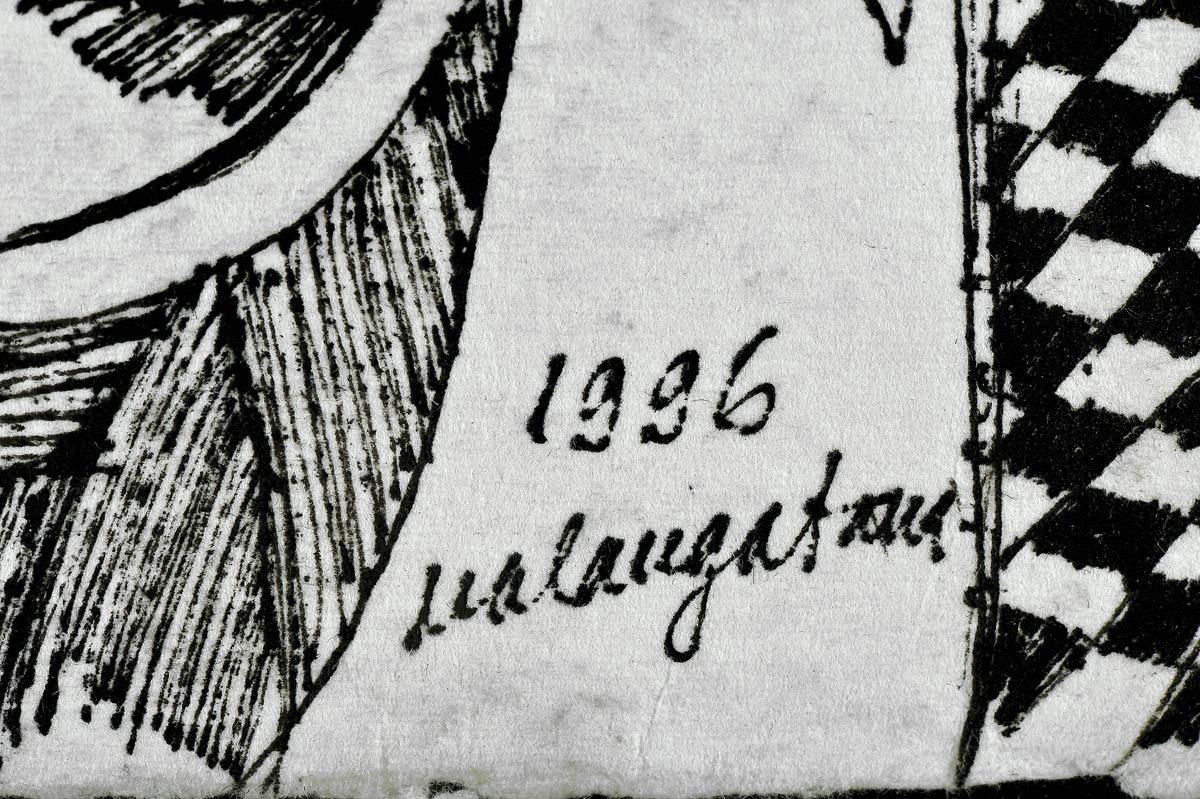 1996
malangatana